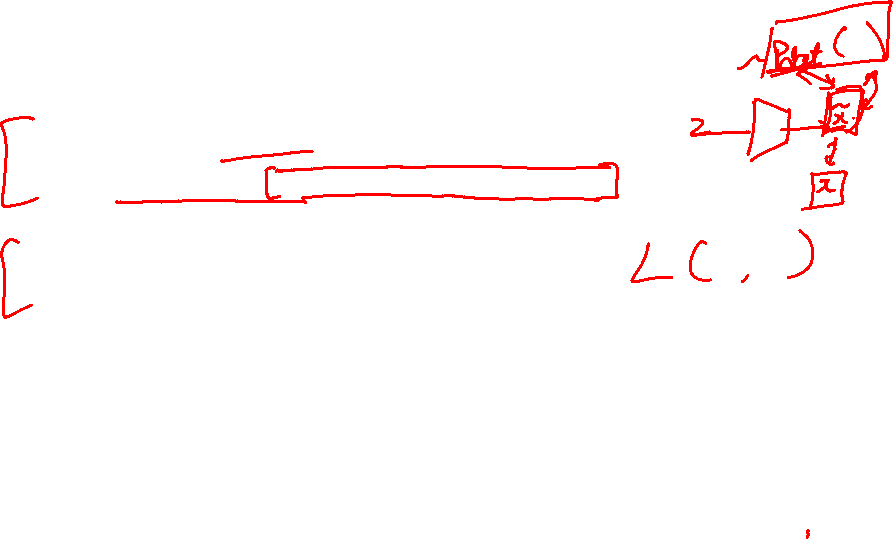 ~ Pdat ( )
z
x̃
x
L ( , )